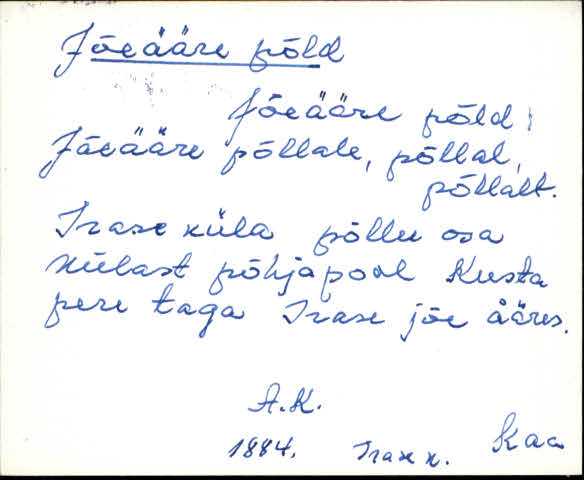 Jõeääre põld
Jõeääre põld,
Jõeääre põllale, põllal,
põllalt.
Irase küla põllu osa
külast põhjapool Kusta
pere taga Irase jõe ääres.
A.K.
1884. Irase k. Kaa